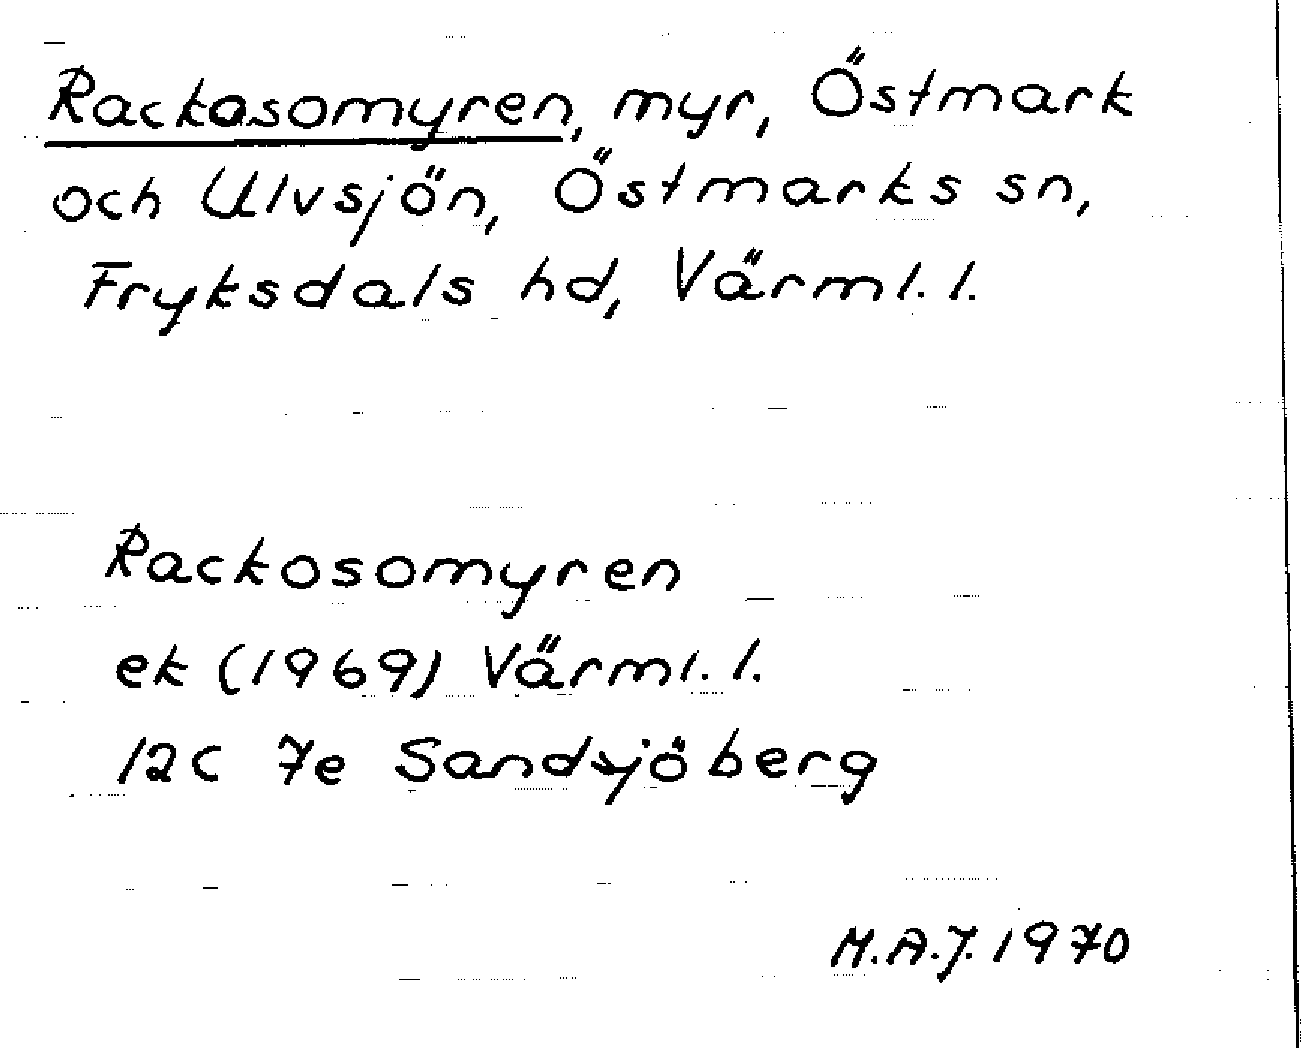 Rackasomyren, myr, Östmark
och Ulvsjön, Östmarks sn,
Fryksdals hd, Värml. l.
Rackosomyren
ek (1969) Värml. l.
12C 7e Sandsjöberg
M.A.J. 1970